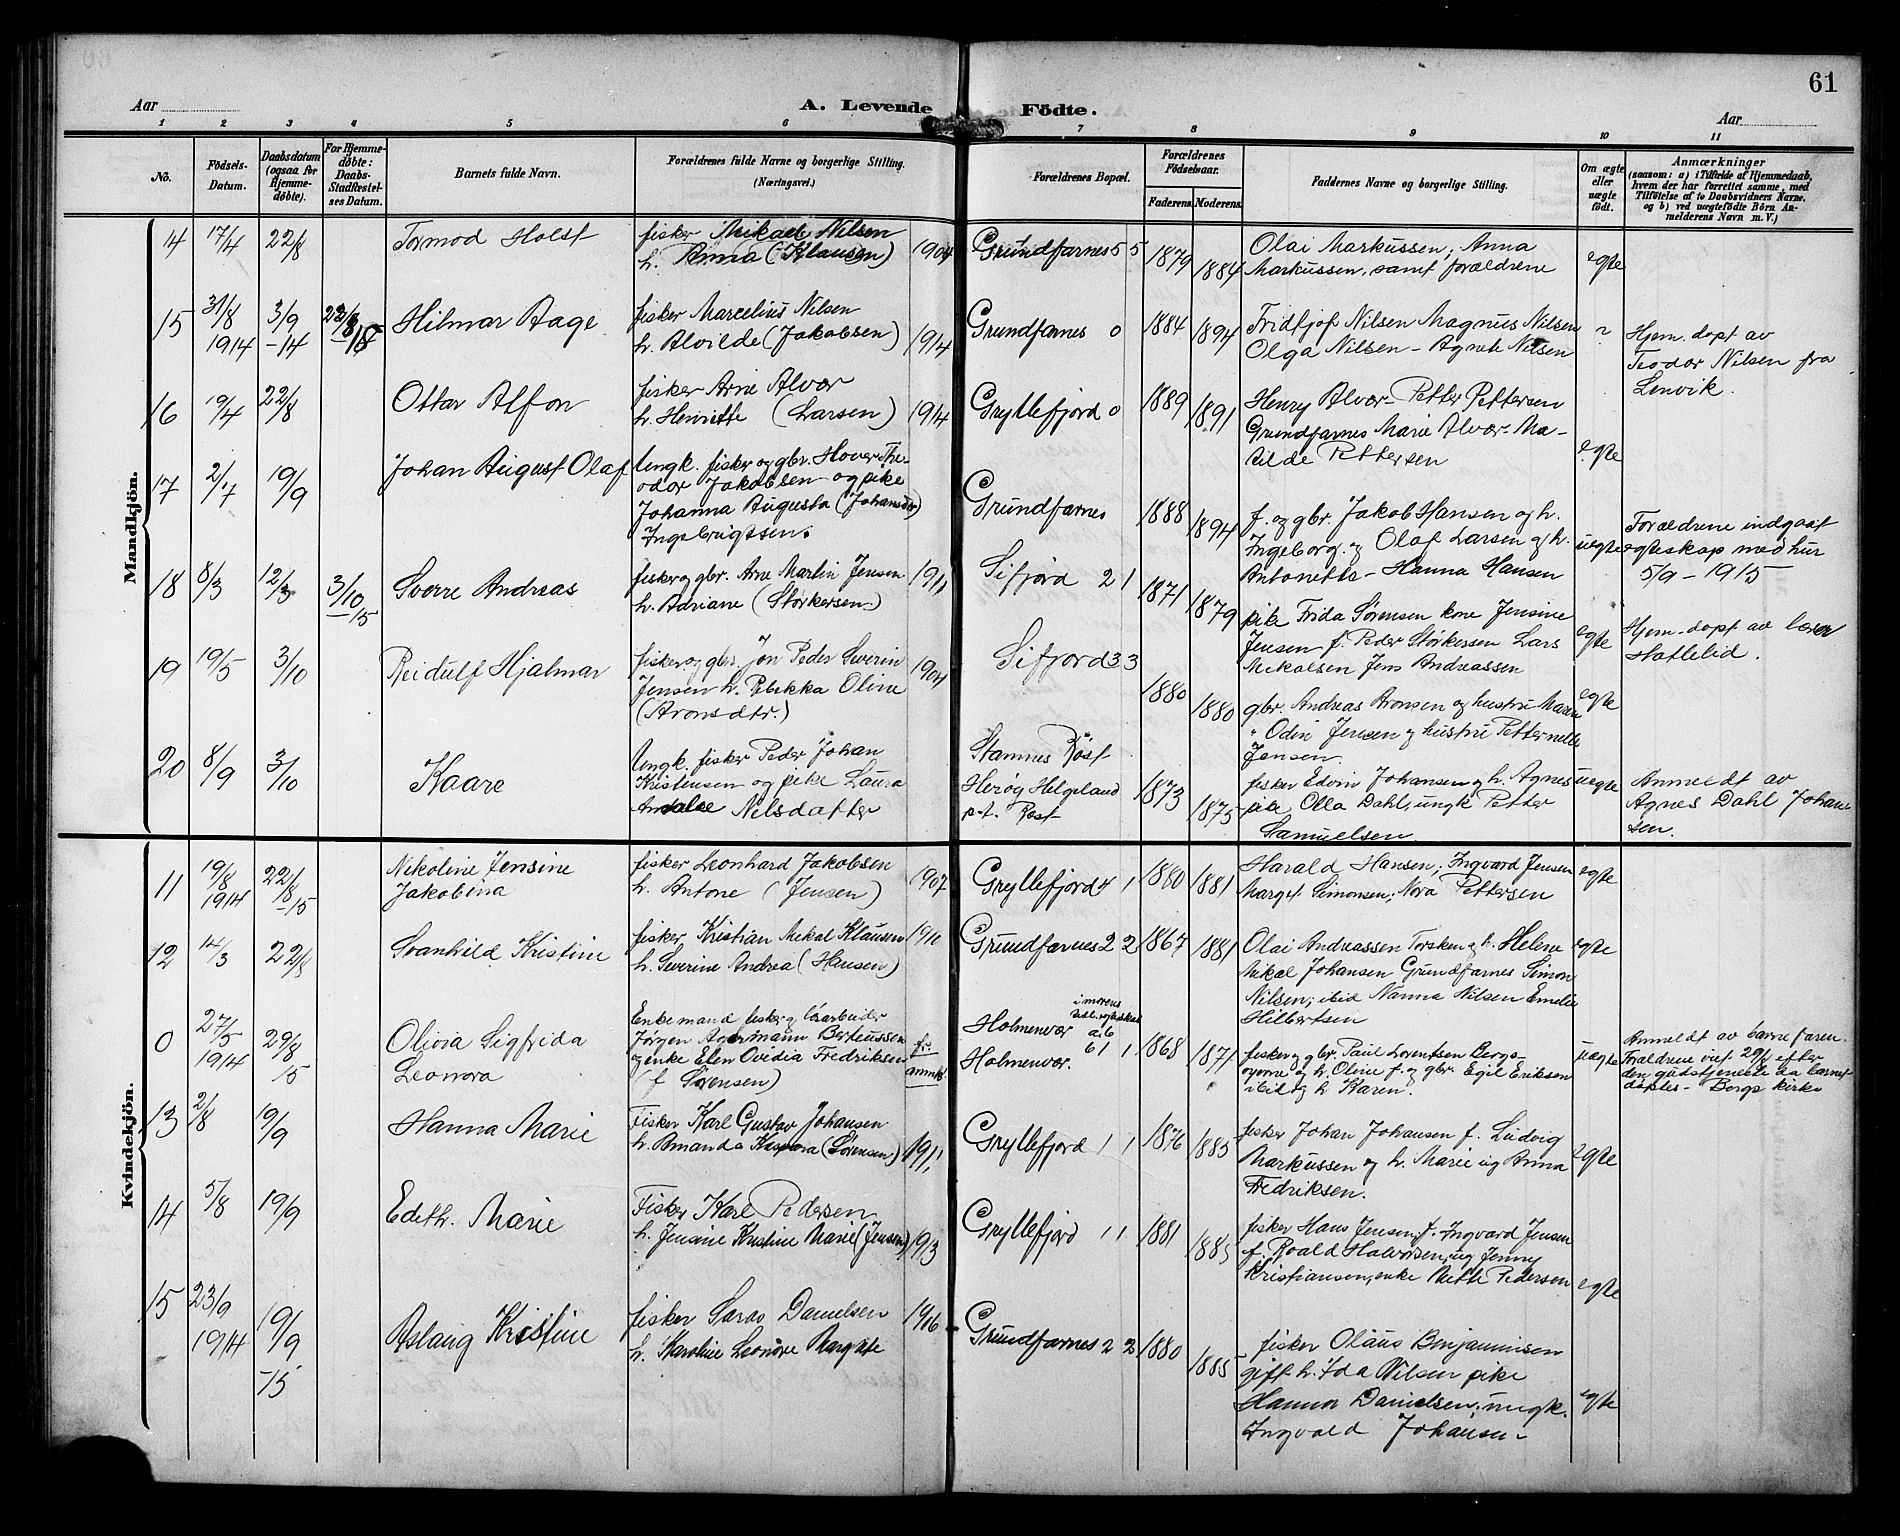 61
Aar
A. Levende Födte.
Aar
1 2 3 4 5 6 7 8 9 10 11
No.
Födsels-
Datum.
Daabsdatum
(ogsaa for
Hjemme-
döbte).
For Hjemme-
döbte:
Daabs-
Stadfæstel-
ses Datum.
Barnets fulde Navn.
Forældrenes fulde Navne og borgerlige Stilling.
(Næringsvei.)
Forældrenes Bopæl.
Forældrenes
Födselsaar.
Faderens. Moderens.
Faddernes Navne og borgerlige Stilling.
Om ægte
eller
uægte
födt.
Anmærkninger
(saasom: a) i Tilfælde af Hjemmedaab,
hvem der har forrettet samme, med
Tilföielse af to Daabsvidners Navne.
og b) ved uægtefödte Börn An-
melderens Navn m. V.)
Mandkjön.
14 17/4 22/8 Tormod Holst
fisker Mikael Nilsen
h. Anna (Klausen) 1904
Grundfarnes 5 5 1879 1884
Olai Markussen; Anna
Markussen, samt forældrene
egte
15 31/8 1914 3/9 -14
Hilmar Aage
fisker Marcelius Nilsen
h. Alvilde (Jakobsen) 1914
Grundfarnes 0 1884 1894
Fridtjof Nilsen Magnus Nilsen
Olga Nilsen - Agnete Nilsen
Hjem. døpt av
Teodor Nilsen fra
Lenvik.
16 19/4 22/8 Ottar Alfon
fisker Arne Alvær
h. Henriette (Larsen) 1914
Gryllefjord 0 1889 1891
Henry Alvær - Petter Pettersen
Grundfarnes Marie Alvær - Ma-
tilde Pettersen
egte
17 2/7 19/9 Johan August Olaf
Ungk. fisker og gbr. Hover The-
odor Jakobsen og pike
Johanna Augusta (Johansdtr)
Ingebrigtsen.
Grundfarnes 1888 1894
f. og gbr. Jakob Hansen og h.
Ingeborg. og Olaf Larsen og h.
Antonette - Hanna Hansen
uegte
Forældrene indgaat
egteskap med hur
5/9 - 1915
18 8/3 12/3 3/10 -15 Sverre Andreas
fisker og gbr. Arne Martin Jensen
h. Adriane (Størkersen) 1911
Sifjord 2 1 1871 1879
pike Frida Sørensen kone Jensine
Jensen f. Peder Størkersen Lars
Mikalsen Jens Andreassen
egte
Hjem. døpt av lærer
Hatlelid.
19 19/5 3/10 Reidulf Hjalmar
fisker og gbr. Jon Peder Severin
Jensen h. Rebekka Oline
(Aronsdtr.) 1904
Sifjord 3 3 1880 1880
gbr. Andreas Aronsen og hustru Maren
" Odin Jensen og hustru Petternelle
Jensen
egte
20 8/9 3/10 Kaare
Ungk. fisker Peder Johan
Kristensen og pike Laura
Nilsdatter
Stamnes Røst
Herøy Helgeland
p.t. Røst
1873 1875
fisker Edvin Johansen og h. Agnes
pike Olla Dahl, ungk Petter
Samuelsen
uegte
Anmeldt av
Agnes Dahl Johan-
sen.
Kvindekjön.
11 19/8 1914 22/8 -15
Nikoline Jensine
Jakobina
fisker Leonhard Jakobsen
h. Antone (Jensen) 1907
Gryllefjord 4 1 1880 1881
Harald Hansen; Ingvard Jensen
Margt. Simonsen; Nora Pettersen
egte
12 14/3 22/8 Svanhild Kristine
fisker Kristian Mikal Klausen
h. Severine Andrea (Hansen) 1910
Grundfarnes 2 2 1867 1881
Olai Andreassen Torsken og h. Helene
Mikal Johansen Grundfarnes Simon
Nilsen; ibid Nanna Nilsen Emelie
Hilbertsen
egte
0 27/5 1914 29/8 15
Olivia Sigfrida
Leonora
Enkemand fisker og
Jørgen Agermann Berteussen
og enke Elen Ovidia Fredriksen
(f Sørensen)
Holmenvær
Holmenvær.
1868 1871
fisker og gbr. Paul Lorentsen Bergs-
øyerne og h. Oline f. og gbr. Egil Eriksen
ibid og h Karen.
uægte
Anmeldt av barnefaren.
Forældrene viet 29/8 efter
den gudstjeneste da barnet
døptes - Bergs kirke
13 2/8 19/9 Hanna Marie
Fisker Karl Gustav Johansen
h. Amanda Kaspara (Sørensen) 1911
Gryllefjord 1 1 1876 1885
fisker Johan Johansen f. Ludvig
Markussen og h. Marie ug Anna
Fredriksen.
egte
14 5/8 19/9 Edith. Marie
Fisker Karl Pedersen
h. Jensine Kristine Marie (Jensen) 1913
Gryllefjord 1 1 1881 1885
fisker Hans Jensen, f. Ingvard Jensen
f. Roald Halvorsen, ug Jenny
Kristiansen, enke Mette Pedersen
egte
15 23/9 1914 19/9 -15
Aslaug Kristine
fisker Daniilsen
h. Karoline Leonore Margrete 1906
Grundfarnes 2 2 1880 1885
fisker Olaus Benjaminsen
gift h. Ida Nilsen pike
Hanna Danielsen; ungk.
Ingvald Johansen
egte